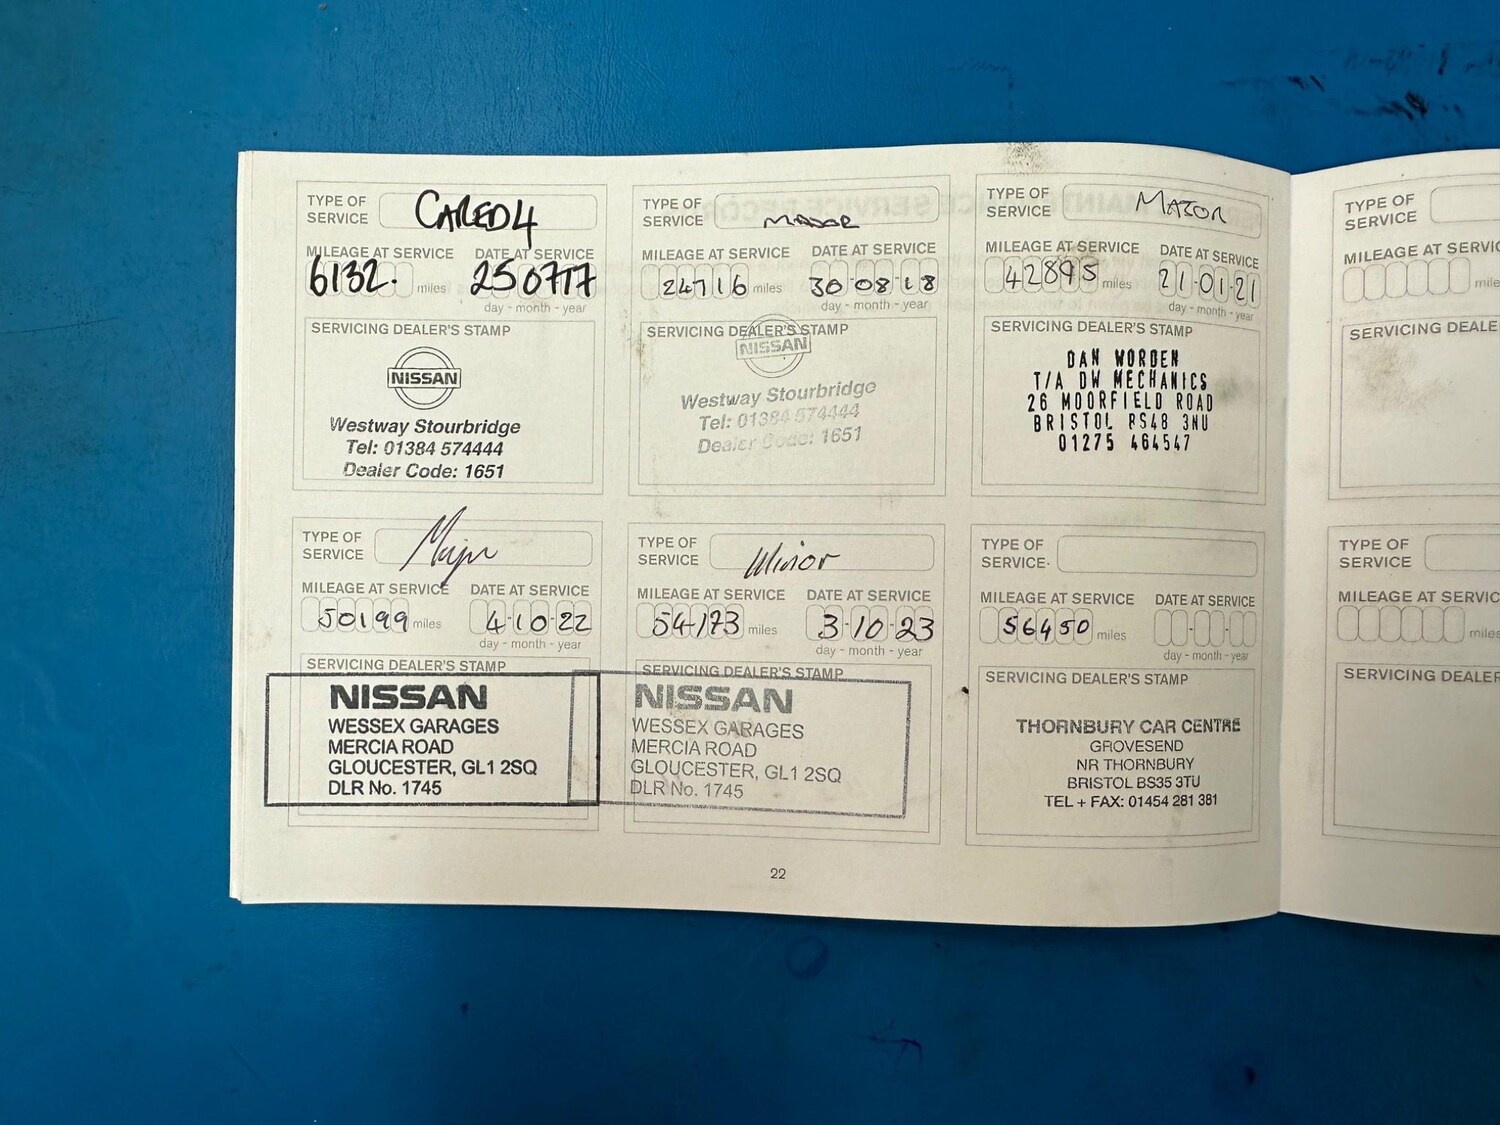 TYPE OF SERVICE CARED4
MILEAGE AT SERVICE DATE AT SERVICE
6132. miles 250717
day - month - year
SERVICING DEALER'S STAMP
NISSAN
Westway Stourbridge
Tel: 01384 574444
Dealer Code: 1651
TYPE OF SERVICE MAJOR
MILEAGE AT SERVICE DATE AT SERVICE
24716 miles 30-08-18
day - month - year
SERVICING DEALER'S STAMP
NISSAN
Westway Stourbridge
Tel: 01384 574444
Dealer Code: 1651
TYPE OF SERVICE MAJOR
MILEAGE AT SERVICE DATE AT SERVICE
42895 miles 21-01-21
day - month - year
SERVICING DEALER'S STAMP
DAN WORDEN
T/A DW MECHANICS
26 MOORFIELD ROAD
BRISTOL BS48 3NU
01275 464547
TYPE OF SERVICE Major
MILEAGE AT SERVICE DATE AT SERVICE
50199 miles 4-10-22
day - month - year
SERVICING DEALER'S STAMP
NISSAN
WESSEX GARAGES
MERCIA ROAD
GLOUCESTER, GL1 2SQ
DLR No. 1745
TYPE OF SERVICE Minor
MILEAGE AT SERVICE DATE AT SERVICE
54173 miles 3-10-23
day - month - year
SERVICING DEALER'S STAMP
NISSAN
WESSEX GARAGES
MERCIA ROAD
GLOUCESTER, GL1 2SQ
DLR No. 1745
TYPE OF SERVICE
MILEAGE AT SERVICE DATE AT SERVICE
56450 miles
day - month - year
SERVICING DEALER'S STAMP
THORNBURY CAR CENTRE
GROVESEND
NR THORNBURY
BRISTOL BS35 3TU
TEL + FAX: 01454 281 381
22
TYPE OF SERVICE
MILEAGE AT SERVIC
mile
SERVICING DEALE
TYPE OF SERVICE
MILEAGE AT SERVIC
miles
SERVICING DEALER